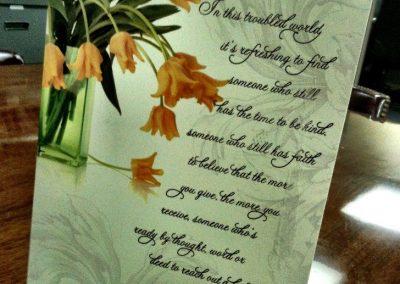 In this troubled world
it's refreshing to find
someone who still
has the time to be kind,
someone who still has faith
to believe that the mor
you give, the more you
receive, someone who's
ready by thought, word or
deed to reach out a